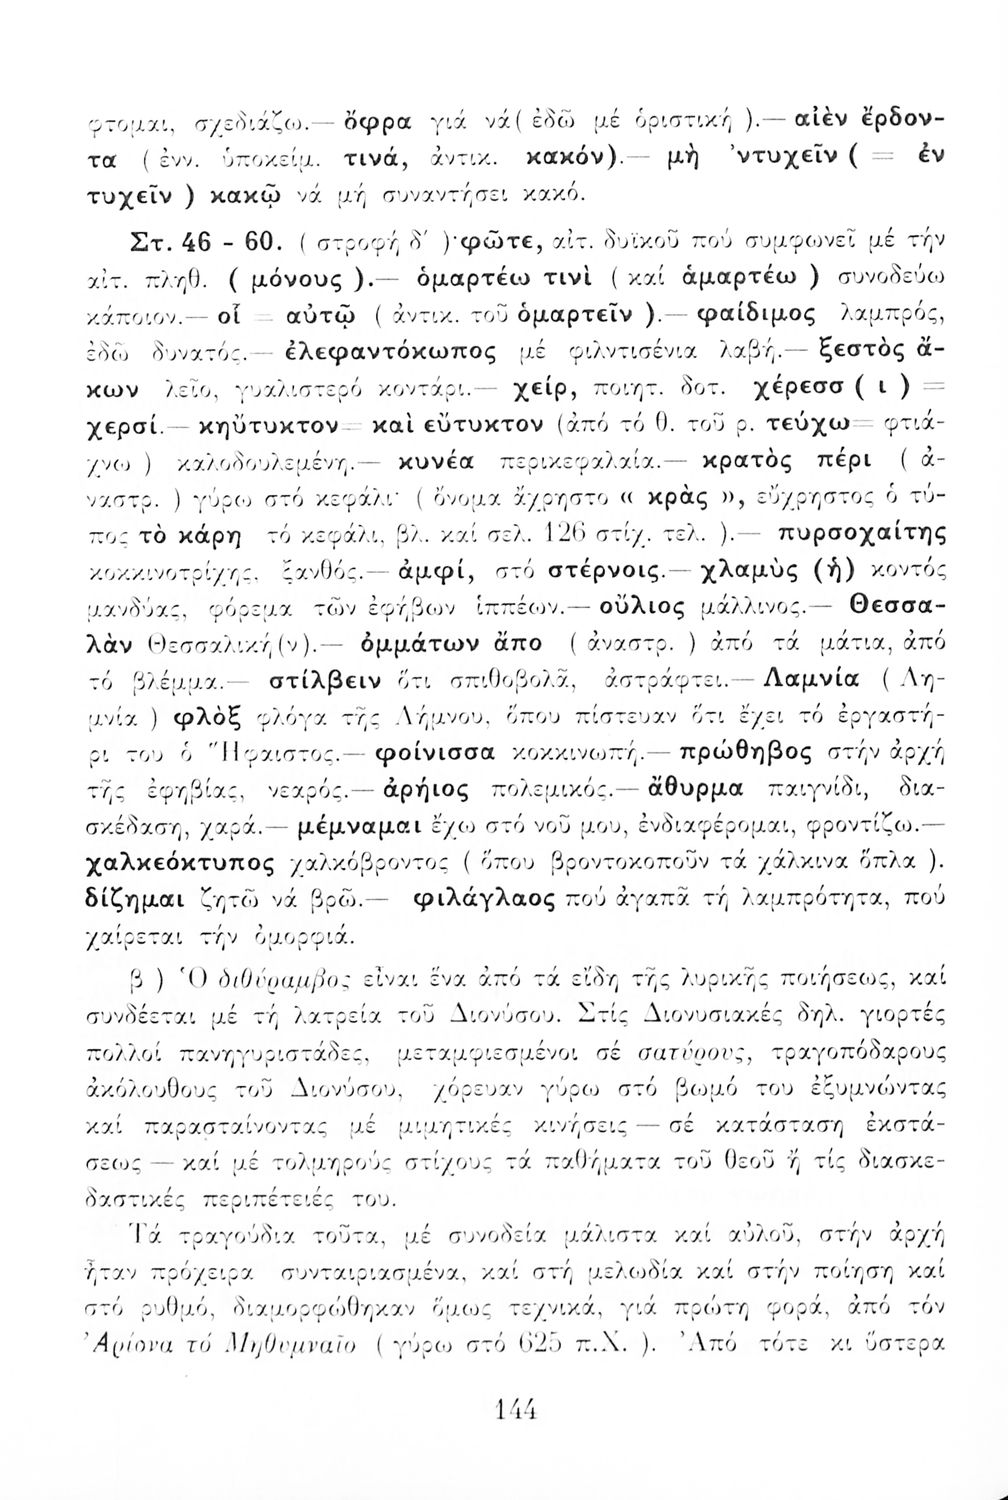 φτομαι, σχεδιάζω.— ὄφρα γιά νά( ἐδῶ μέ ὁριστική ).— αἰὲν ἔρδον-
τα ( ἐνν. ὑποκείμ. τινά, ἀντικ. κακόν).— μὴ ’ντυχεῖν ( = ἐν
τυχεῖν ) κακῷ νά μή συναντήσει κακό.
Στ. 46 - 60. ( στροφή δ΄ )·φῶτε, αἰτ. δυϊκοῦ πού συμφωνεῖ μέ τήν
αἰτ. πληθ. ( μόνους ).— ὁμαρτέω τινὶ ( καί ἁμαρτέω ) συνοδεύω
κάποιον.— οἷ = αὐτῷ ( ἀντικ. τοῦ ὁμαρτεῖν ).— φαίδιμος λαμπρός,
ἐδῶ δυνατός.— ἐλεφαντόκωπος μέ φιλντισένια λαβή.— ξεστὸς ἄ-
κων λεῖο, γυαλιστερό κοντάρι.— χείρ, ποιητ. δοτ. χέρεσσ ( ι ) =
χερσί.— κηὔτυκτον = καὶ εὔτυκτον (ἀπό τό θ. τοῦ ρ. τεύχω = φτιά-
χνω ) καλοδουλεμένη.— κυνέα περικεφαλαία.— κρατὸς πέρι ( ἀ-
ναστρ. ) γύρω στό κεφάλι· ( ὄνομα ἄχρηστο « κρὰς », εὔχρηστος ὁ τύ-
πος τὸ κάρη τό κεφάλι, βλ. καί σελ. 126 στίχ. τελ. ).— πυρσοχαίτης
κοκκινοτρίχης, ξανθός.— ἀμφί, στό στέρνοις.— χλαμὺς (ἡ) κοντός
μανδύας, φόρεμα τῶν ἐφήβων ἱππέων.— οὔλιος μάλλινος.— Θεσσα-
λὰν Θεσσαλική(ν).— ὀμμάτων ἄπο ( ἀναστρ. ) ἀπό τά μάτια, ἀπό
τό βλέμμα.— στίλβειν ὅτι σπιθοβολᾶ, ἀστράφτει.— Λαμνία ( Λη-
μνία ) φλὸξ φλόγα τῆς Λήμνου, ὅπου πίστευαν ὅτι ἔχει τό ἐργαστή-
ρι του ὁ Ἥφαιστος.— φοίνισσα κοκκινωπή.— πρώθηβος στήν ἀρχή
τῆς ἐφηβίας, νεαρός.— ἀρήιος πολεμικός.— ἄθυρμα παιγνίδι, δια-
σκέδαση, χαρά.— μέμναμαι ἔχω στό νοῦ μου, ἐνδιαφέρομαι, φροντίζω.—
χαλκεόκτυπος χαλκόβροντος ( ὅπου βροντοκοποῦν τά χάλκινα ὅπλα ).
δίζημαι ζητῶ νά βρῶ.— φιλάγλαος πού ἀγαπᾶ τή λαμπρότητα, πού
χαίρεται τήν ὀμορφιά.
β ) Ὁ διθύραμβος εἶναι ἕνα ἀπό τά εἴδη τῆς λυρικῆς ποιήσεως, καί
συνδέεται μέ τή λατρεία τοῦ Διονύσου. Στίς Διονυσιακές δηλ. γιορτές
πολλοί πανηγυριστάδες, μεταμφιεσμένοι σέ σατύρους, τραγοπόδαρους
ἀκόλουθους τοῦ Διονύσου, χόρευαν γύρω στό βωμό του ἐξυμνώντας
καί παρασταίνοντας μέ μιμητικές κινήσεις — σέ κατάσταση ἐκστά-
σεως — καί μέ τολμηρούς στίχους τά παθήματα τοῦ θεοῦ ἤ τίς διασκε-
δαστικές περιπέτειές του.
Τά τραγούδια τοῦτα, μέ συνοδεία μάλιστα καί αὐλοῦ, στήν ἀρχή
ἦταν πρόχειρα συνταιριασμένα, καί στή μελωδία καί στήν ποίηση καί
στό ρυθμό, διαμορφώθηκαν ὅμως τεχνικά, γιά πρώτη φορά, ἀπό τόν
Ἀρίονα τό Μηθυμναῖο ( γύρω στό 625 π.Χ. ). Ἀπό τότε κι ὕστερα
144